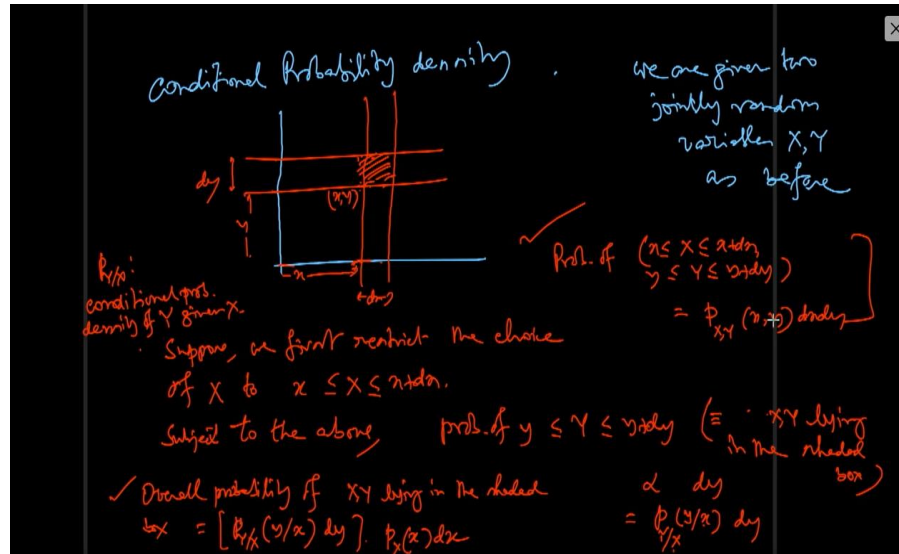 Conditional Probability density .
we are given two
jointly random
variables X,Y
as before
dy
y
(x,y)
x
dx
Prob. of (x ≤ X ≤ x+dx,
y ≤ Y ≤ y+dy)
= p_{X,Y} (x,y) dxdy
P_{Y/X}:
conditional prob.
density of Y given X.
Suppose, we first restrict the choice
of X to x ≤ X ≤ x+dx.
Subject to the above, prob. of y ≤ Y ≤ y+dy (≡ X,Y lying
in the shaded
box)
α dy
= p_{Y/X} (y/x) dy
✓ Overall probability of XY lying in the shaded
box = [P_{Y/X} (y/x) dy] . p_X(x) dx